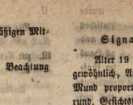 äßigen Mit-
Beachtung
Signa
Alter 19
gewöhnlich, A
Mund propor
rund, Gesichts